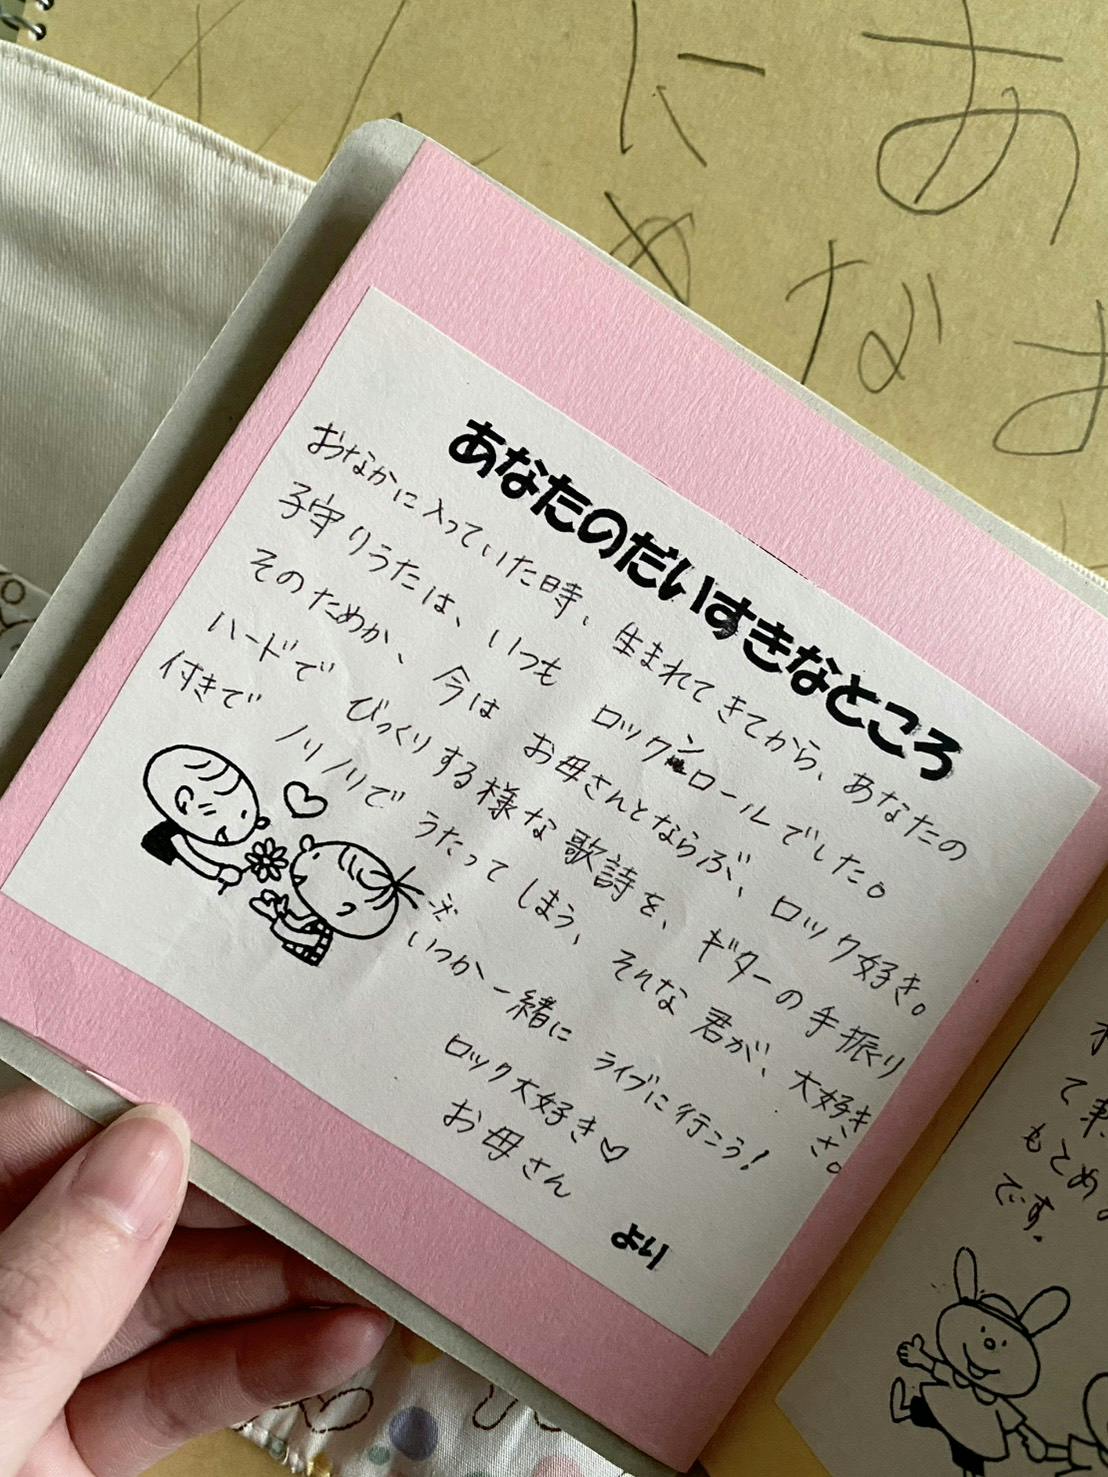 にあ
め な お
あなたのだいすきなところ
おなかに入っていた時、生まれてきてから、あなたの
子守りうたは、いつも ロックンロールでした。
そのためか、今は お母さんとならぶ、ロック好き。
ハードで びっくりする様な歌詩を、ギターの手振り
付きで ノリノリで うたって しまう、そんな 君が、大好き
さ。
いつか一緒に ライブに行こう!
ロック大好き♡
お母さん
より
て
もとめ
です。